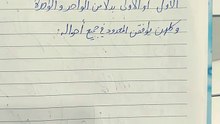 الأول أو الأولى بدلا من الواحد والواحدة
وكلهن يوافقن المعدود في جميع أحواله.